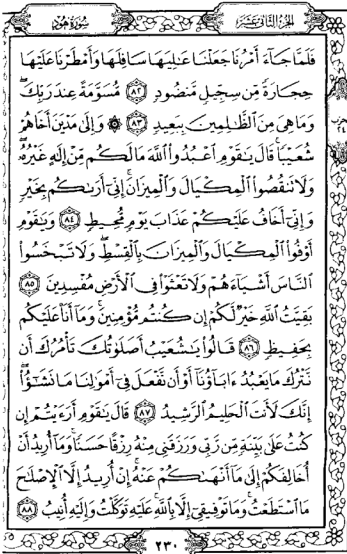 الجزء الثاني عشر
سورة هود
فَلَمَّا جَآءَ أَمْرُنَا جَعَلْنَا عَٰلِيَهَا سَافِلَهَا وَأَمْطَرْنَا عَلَيْهَا
حِجَارَةً مِّن سِجِّيلٍ مَّنضُودٍ ٨٢ مُّسَوَّمَةً عِندَ رَبِّكَۖ
وَمَا هِيَ مِنَ ٱلظَّٰلِمِينَ بِبَعِيدٍ ٨٣ ۞ وَإِلَىٰ مَدْيَنَ أَخَاهُمْ
شُعَيْبًاۚ قَالَ يَٰقَوْمِ ٱعْبُدُواْ ٱللَّهَ مَا لَكُم مِّنْ إِلَٰهٍ غَيْرُهُۥۖ
وَلَا تَنقُصُواْ ٱلْمِكْيَالَ وَٱلْمِيزَانَۚ إِنِّيٓ أَرَىٰكُم بِخَيْرٍ
وَإِنِّيٓ أَخَافُ عَلَيْكُمْ عَذَابَ يَوْمٍ مُّحِيطٍ ٨٤ وَيَٰقَوْمِ
أَوْفُواْ ٱلْمِكْيَالَ وَٱلْمِيزَانَ بِٱلْقِسْطِۖ وَلَا تَبْخَسُواْ
ٱلنَّاسَ أَشْيَآءَهُمْ وَلَا تَعْثَوْاْ فِي ٱلْأَرْضِ مُفْسِدِينَ ٨٥
بَقِيَّتُ ٱللَّهِ خَيْرٌ لَّكُمْ إِن كُنتُم مُّؤْمِنِينَۚ وَمَآ أَنَا۠ عَلَيْكُم
بِحَفِيظٍ ٨٦ قَالُواْ يَٰشُعَيْبُ أَصَلَوٰتُكَ تَأْمُرُكَ أَن
نَّتْرُكَ مَا يَعْبُدُ ءَابَآؤُنَآ أَوْ أَن نَّفْعَلَ فِيٓ أَمْوَٰلِنَا مَا نَشَٰٓؤُاْۖ
إِنَّكَ لَأَنتَ ٱلْحَلِيمُ ٱلرَّشِيدُ ٨٧ قَالَ يَٰقَوْمِ أَرَءَيْتُمْ إِن
كُنتُ عَلَىٰ بَيِّنَةٍ مِّن رَّبِّي وَرَزَقَنِي مِنْهُ رِزْقًا حَسَنًاۚ وَمَآ أُرِيدُ أَنْ
أُخَالِفَكُمْ إِلَىٰ مَآ أَنْهَىٰكُمْ عَنْهُۚ إِنْ أُرِيدُ إِلَّا ٱلْإِصْلَٰحَ
مَا ٱسْتَطَعْتُۚ وَمَا تَوْفِيقِيٓ إِلَّا بِٱللَّهِۚ عَلَيْهِ تَوَكَّلْتُ وَإِلَيْهِ أُنِيبُ ٨٨
٢٣٠